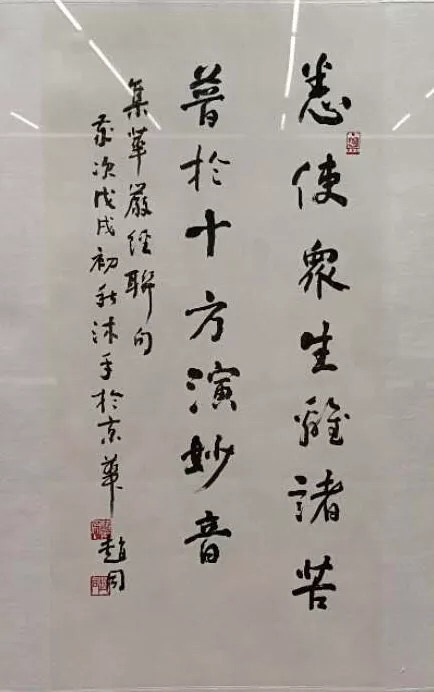 悉使眾生離諸苦
普於十方演妙音
集華嚴經聯句
歲次戊戌初秋沐手於京華
趙同